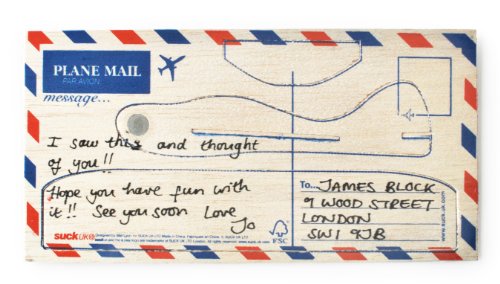 PLANE MAIL
PAR AVION
message...
I saw this and thought
of you!!
Hope you have fun with
it!! See you soon Love
Jo
To... JAMES BLOCK
9 WOOD STREET
LONDON
SW1 9JB
suck UK
FSC
www.suck.uk.com